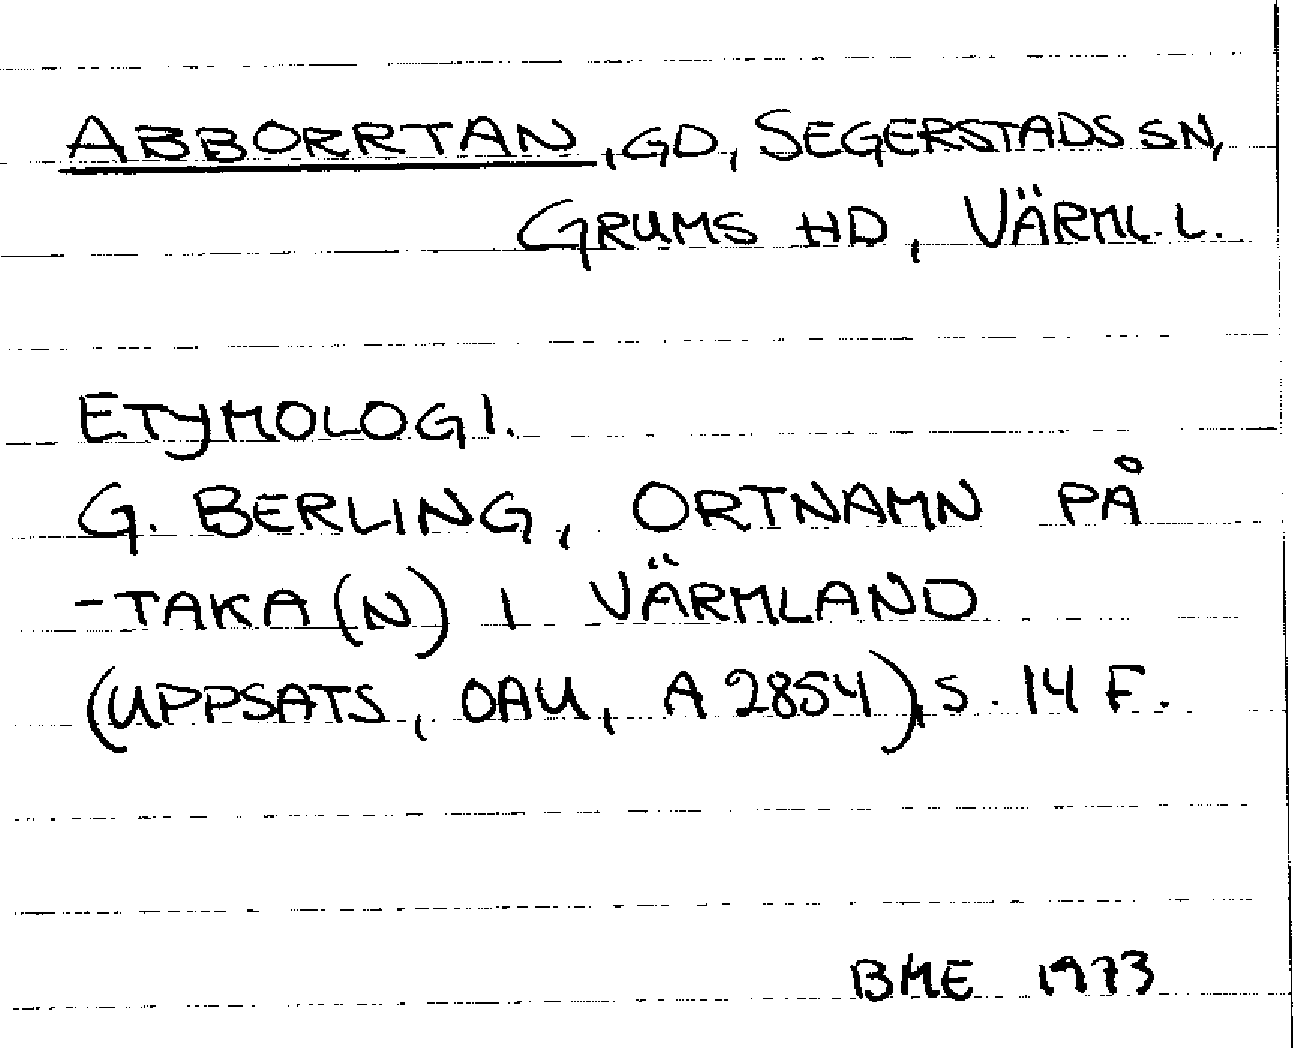 ABBORRTAN, GD, SEGERSTADS SN,
GRUMS HD, VÄRML. L.
ETYMOLOGI.
G. BERLING, ORTNAMN PÅ
-TAKA(N) I VÄRMLAND
(UPPSATS, OAU, A 2854), S. 14 F.
BME 1973